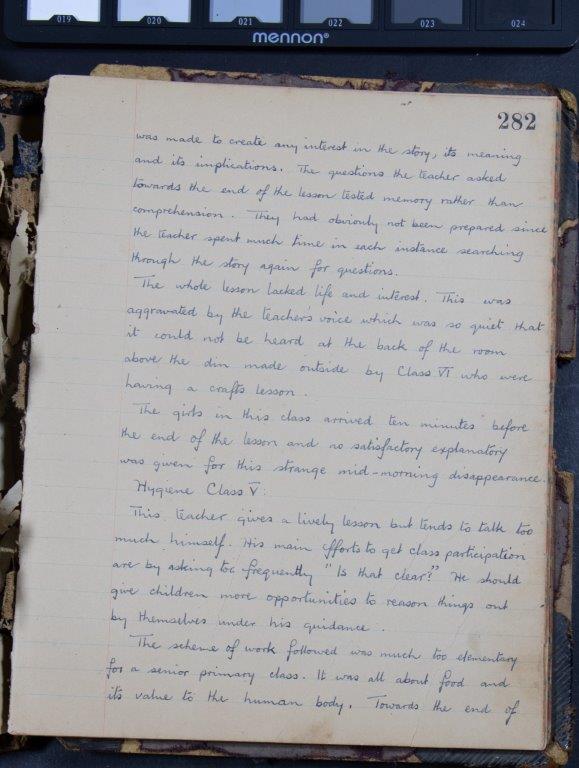 019 020 021 022 023 024
mennon®
282
was made to create any interest in the story, its meaning
and its implications. The questions the teacher asked
towards the end of the lesson tested memory rather than
comprehension. They had obviously not been prepared since
the teacher spent much time in each instance searching
through the story again for questions.
The whole lesson lacked life and interest. This was
aggravated by the teacher's voice which was so quiet that
it could not be heard at the back of the room
above the din made outside by Class VI who were
having a crafts lesson.
The girls in this class arrived ten minutes before
the end of the lesson and no satisfactory explanatory
was given for this strange mid-morning disappearance.
Hygiene Class V.
This teacher gives a lively lesson but tends to talk too
much himself. His main efforts to get class participation
are by asking too frequently "Is that clear?" He should
give children more opportunities to reason things out
by themselves under his guidance.
The scheme of work followed was much too elementary
for a senior primary class. It was all about food and
its value to the human body. Towards the end of